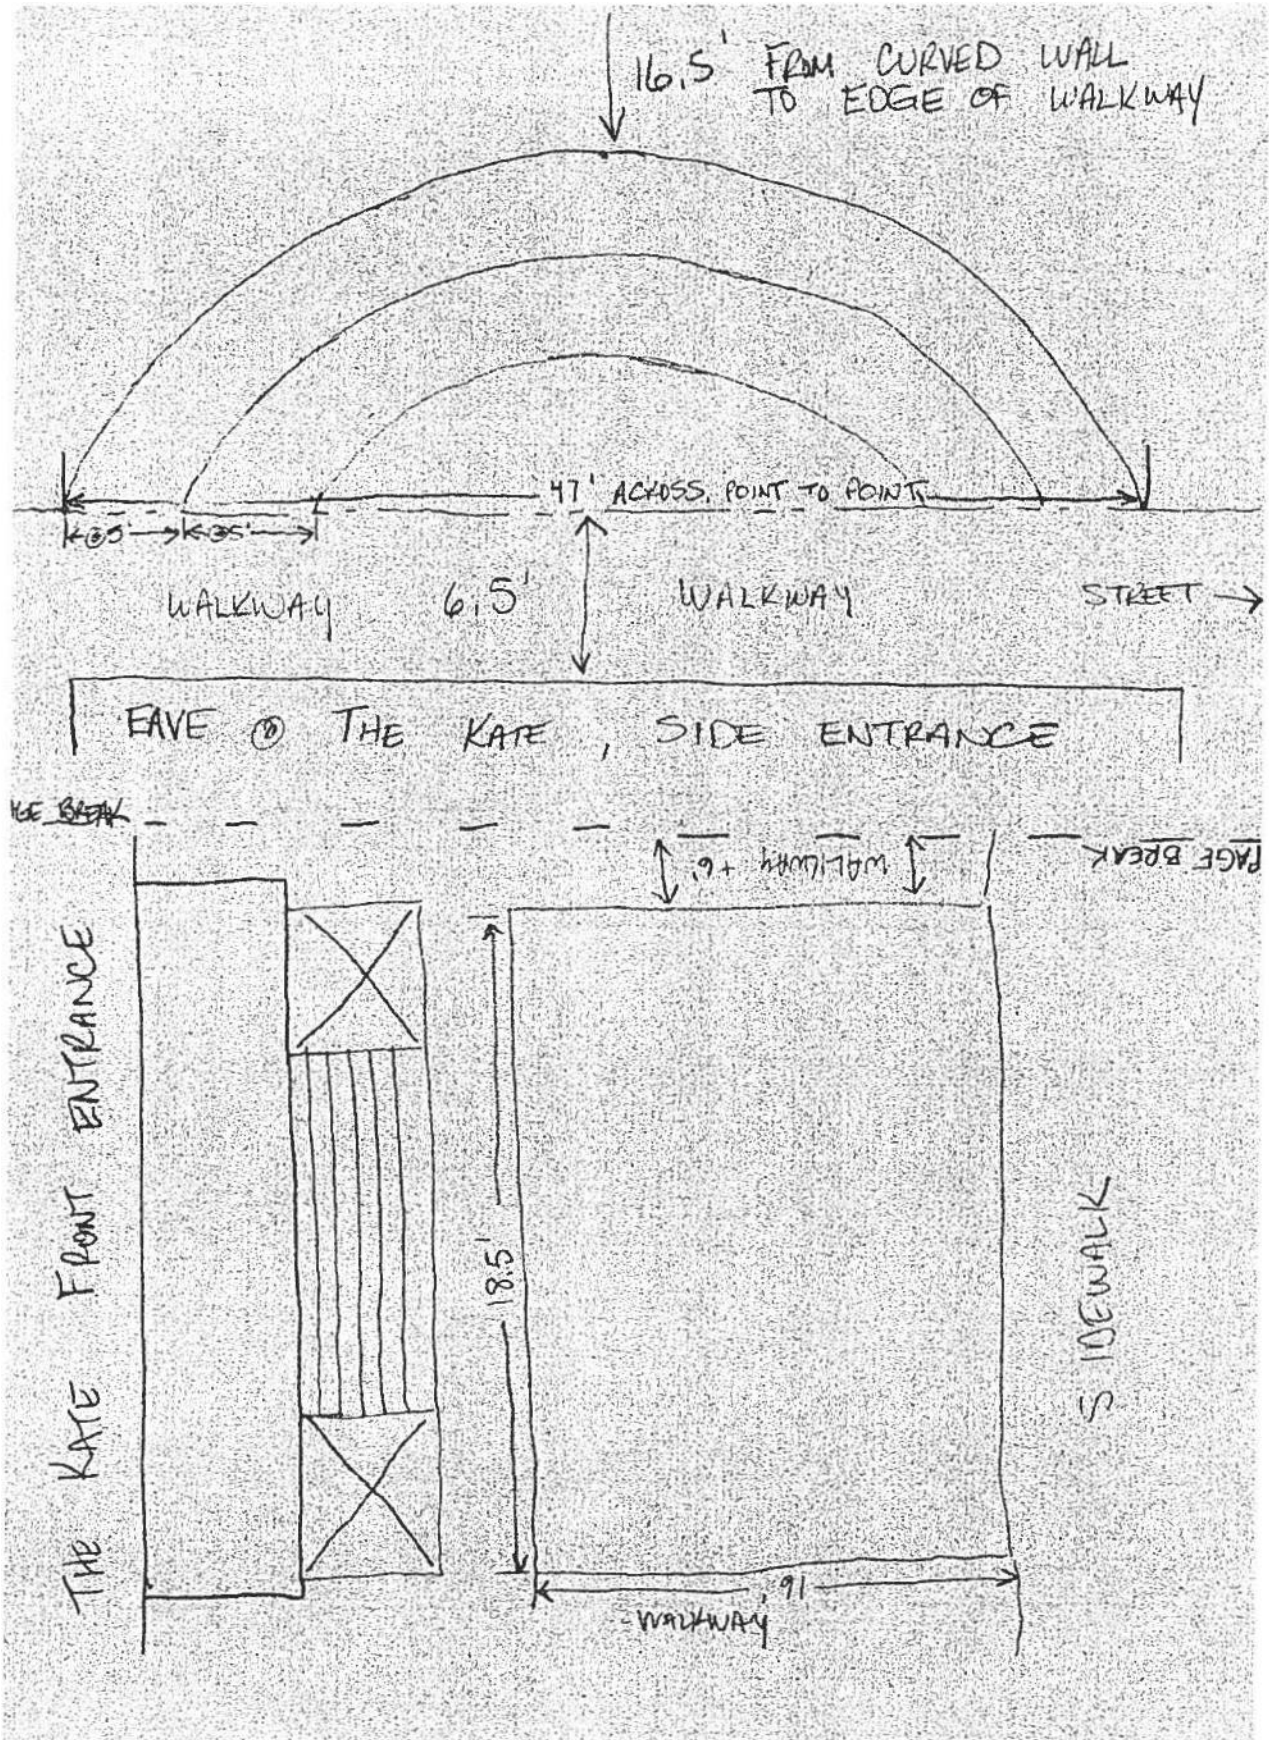 16.5' FROM CURVED WALL
TO EDGE OF WALKWAY
47' ACROSS, POINT TO POINT
@5' @5'
WALKWAY 6.5' WALKWAY STREET
EAVE @ THE KATE, SIDE ENTRANCE
GE BREAK
WALKWAY +6'
PAGE BREAK
THE KATE FRONT ENTRANCE
18.5'
SIDEWALK
16'
WALKWAY